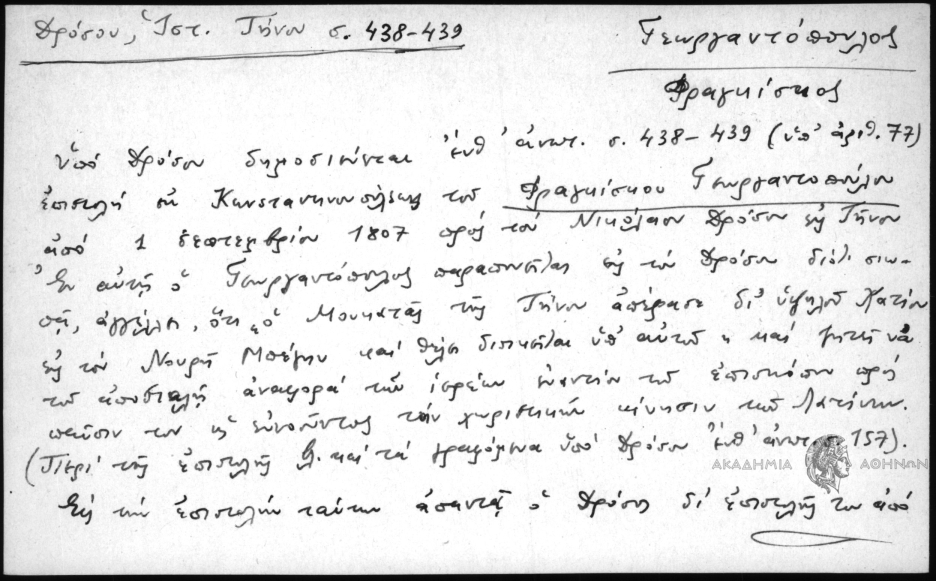 Δρόσου, Ἱστ. Τήνου σ. 438-439
Γεωργαντόπουλος
Φραγκίσκος
Ὑπό Δρόσου δημοσιεύεται ἔνθ' ἀνωτ. σ. 438-439 (ὑπ' ἀριθ. 77)
ἐπιστολή ἐκ Κωνσταντινουπόλεως τοῦ Φραγκίσκου Γεωργαντοπούλου
ἀπό 1 Σεπτεμβρίου 1807 πρός τόν Νικόλαον Δρόσον εἰς Τῆνον
Ἐν αὐτῇ ὁ Γεωργαντόπουλος παραπονεῖται εἰς τόν Δρόσον διότι σιω-
πᾷ, ἀγγέλλει, ὅτι ὁ Μουκατᾶς τῆς Τήνου ἀπέρασε δι' ὑψηλοῦ Χατίου
εἰς τόν Νουρῆ Μπέην καί θέλει διοικεῖται ὑπ' αὐτοῦ καί ζητεῖ νά
τοῦ ἀποσταλῇ ἀναφορά τῶν ἱερέων ἐναντίον τοῦ ἐπισκόπου πρός
παῦσιν του ὡς εὐνοοῦντος τήν χωριστικήν κίνησιν τῶν Λατίνων.
(Περί τῆς ἐπιστολῆς βλ. καί τά γραφόμενα ὑπό Δρόσου ἔνθ' ἀνωτ. σ. 157).
Εἰς τήν ἐπιστολήν ταύτην ἀπαντᾷ ὁ Δρόσος δι' ἐπιστολῆς του ἀπό
ΑΚΑΔΗΜΙΑ ΑΘΗΝΩΝ